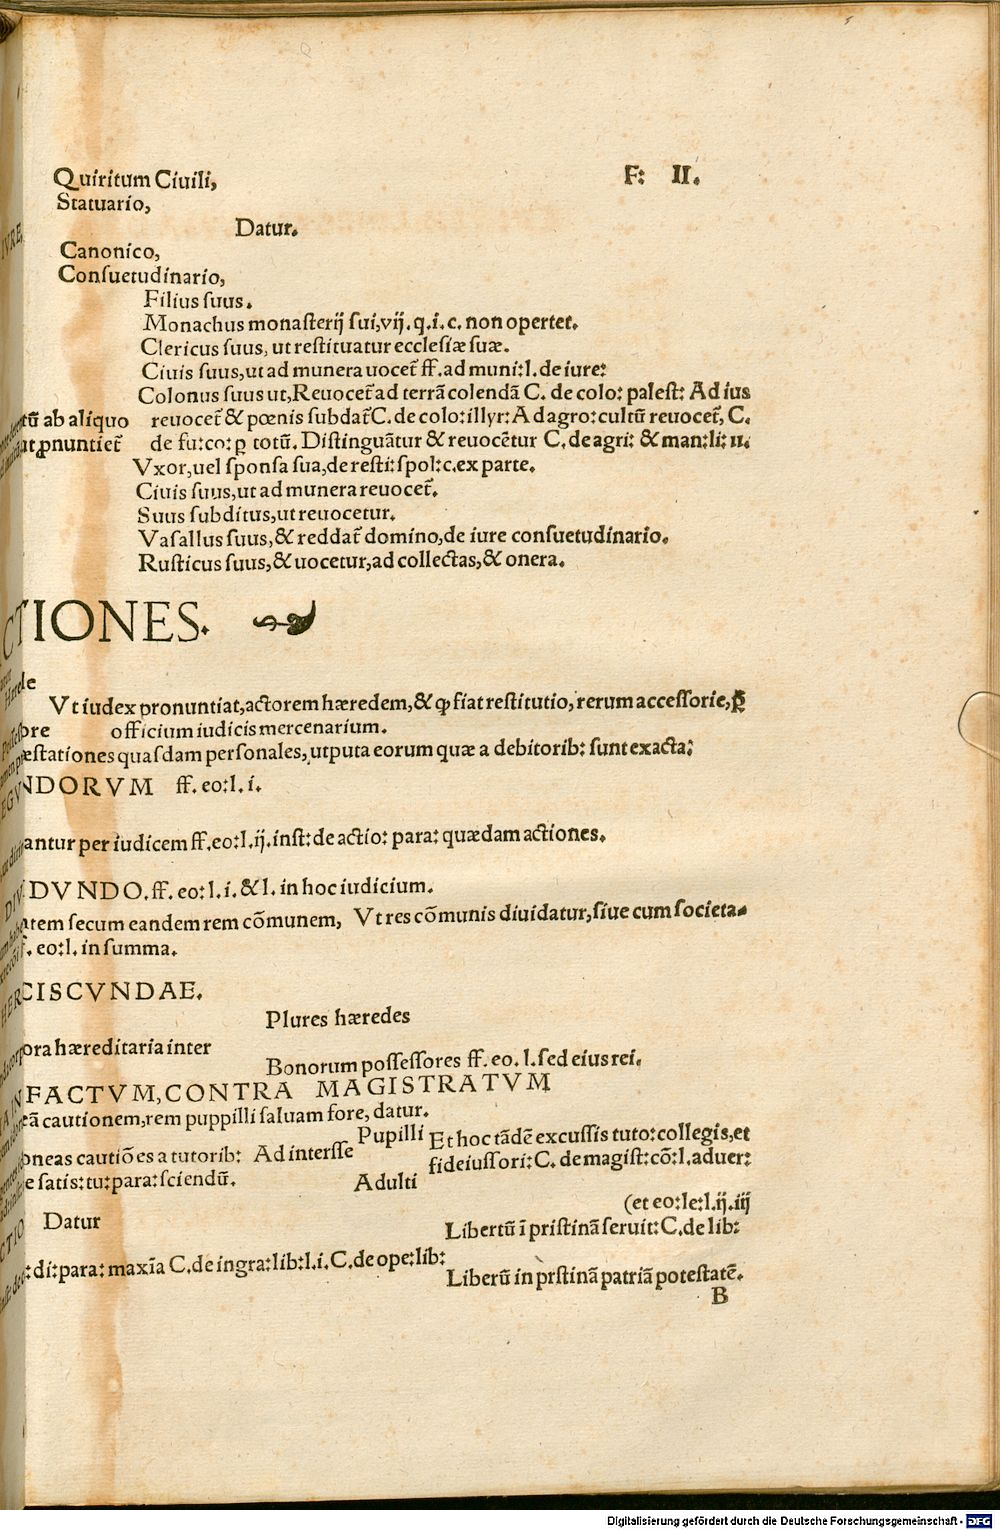 Quiritum Ciuili,
F: II.
Statuario,
Datur.
Canonico,
Conſuetudinario,
Filius ſuus.
Monachus monaſterij ſui, vij. q. i. c. non opertet.
Clericus ſuus, ut reſtituatur eccleſiæ ſuæ.
Ciuis ſuus, ut ad munera uocet̃ ff. ad muni: l. de iure:
Colonus ſuus ut, Reuocet̃ ad terrã colendã C. de colo: paleſt: Ad ius
tũ ab aliquo reuocet̃ & pœnis ſubdat̃ C. de colo: illyr: Ad agro: cultũ reuocet̃, C.
ut ꝓnuntiet̃ de fu: co: ꝑ totũ. Diſtinguãtur & reuocẽtur C. de agri: & man: li: ii.
Vxor, uel ſponſa ſua, de reſti: ſpol: c. ex parte.
Ciuis ſuus, ut ad munera reuocet̃.
Suus ſubditus, ut reuocetur.
Vaſallus ſuus, & reddat̃ domino, de iure conſuetudinario.
Ruſticus ſuus, & uocetur, ad collectas, & onera.
CTIONES.
Vt iudex pronuntiat, actorem hæredem, & ꝙ fiat reſtitutio, rerum acceſſorie, ꝑ
officium iudicis mercenarium.
eſtationes quaſdam perſonales, utputa eorum quæ a debitorib: ſunt exacta:
NDORVM ff. eo: l. i.
antur per iudicem ff. eo: l. ij. inſt: de actio: para: quædam actiones.
DVNDO. ff. eo: l. i. & l. in hoc iudicium.
tem ſecum eandem rem cõmunem, Vt res cõmunis diuidatur, ſiue cum ſocieta-
f. eo: l. in ſumma.
CISCVNDAE.
Plures hæredes
ora hæreditaria inter
Bonorum poſſeſſores ff. eo. l. ſed eius rei.
FACTVM, CONTRA MAGISTRATVM
eã cautionem, rem puppilli ſaluam fore, datur.
Pupilli Et hoc tãdẽ excuſſis tuto: collegis, et
oneas cautiões a tutorib: Ad interſſe
fideiuſſori: C. de magiſt: cõ: l. aduer:
e ſatis: tu: para: ſciendũ.
Adulti
(et eo: le: l. ij. iij
Datur
Libertũ ĩ priſtinã ſeruit: C. de lib:
: di: para: maxĩa C. de ingra: lib: l. i. C. de ope: lib:
Liberũ in prſtinã patriã poteſtatẽ.
B
Digitalisierung gefördert durch die Deutsche Forschungsgemeinschaft - DFG